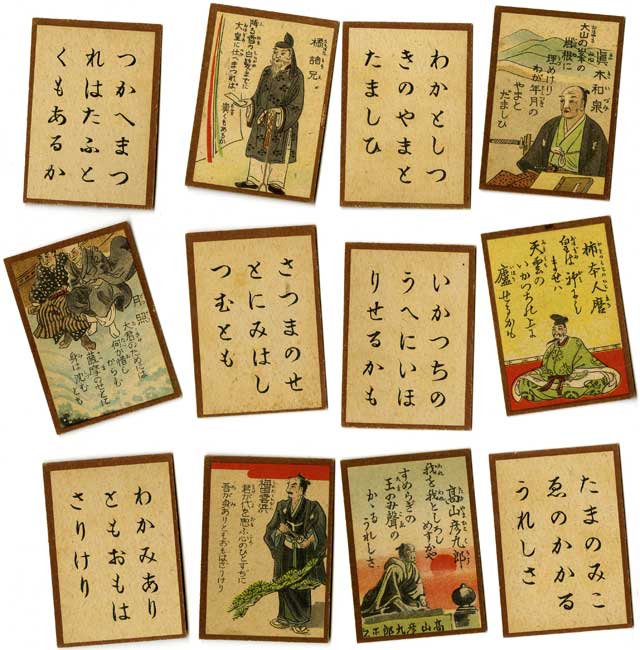 つかへまつ
れはたふと
くもあるか
橘諸兄
降る雪の白髪までに
大皇に仕へまつれば
貴くもあるか
わかとしつ
きのやまと
たましひ
眞木和泉
大山の峯の
岩根に
埋めけり
わが年月の
やまと
だましひ
月照
大君のためには
何か惜し
からむ
薩摩のせとに
身は沈むとも
さつまのせ
とにみはし
つむとも
いかつちの
うへにいほ
りせるかも
柿本人麿
皇は神にし
ませば
天雲の
いかつちの上に
廬せるかも
わかみあり
ともおもは
さりけり
梅田雲浜
君が代を思ふ心のひとすぢに
吾が身ありともおもはざりけり
高山彦九郎
我を我としろし
めすかや
すめらぎの
玉のみ聲の
かゝるうれしさ
高山彦九郎正
たまのみこ
ゑのかかる
うれしさ